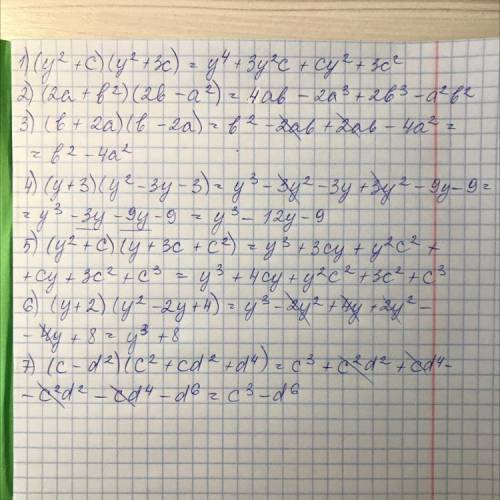 1) (y² + c)(y² + 3c) = y⁴ + 3y²c + cy² + 3c²
2) (2a + b²)(2b - a²) = 4ab - 2a³ + 2b³ - a²b²
3) (b + 2a)(b - 2a) = b² - 2ab + 2ab - 4a² =
= b² - 4a²
4) (y + 3)(y² - 3y - 3) = y³ - 3y² - 3y + 3y² - 9y - 9 =
= y³ - 3y - 9y - 9 = y³ - 12y - 9
5) (y² + c)(y + 3c + c²) = y³ + 3cy + y²c² +
+ cy + 3c² + c³ = y³ + 4cy + y²c² + 3c² + c³
6) (y + 2)(y² - 2y + 4) = y³ - 2y² + 4y + 2y² -
- 4y + 8 = y³ + 8
7) (c - d²)(c² + cd² + d⁴) = c³ + c²d² + cd⁴ -
- c²d² - cd⁴ - d⁶ = c³ - d⁶